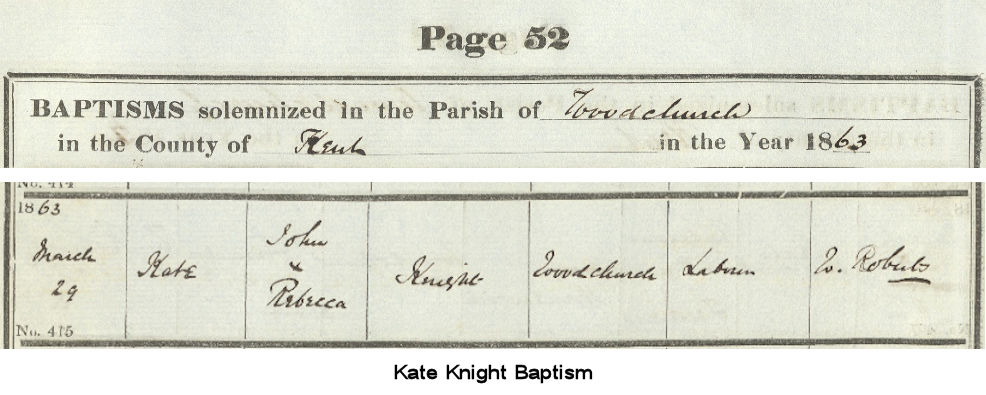 Page 52
BAPTISMS solemnized in the Parish of Woodchurch
in the County of Kent in the Year 1863
No. 414
1863
March
29
Kate
John
&
Rebecca
Knight
Woodchurch
Labourer
W. Roberts
No. 415
Kate Knight Baptism